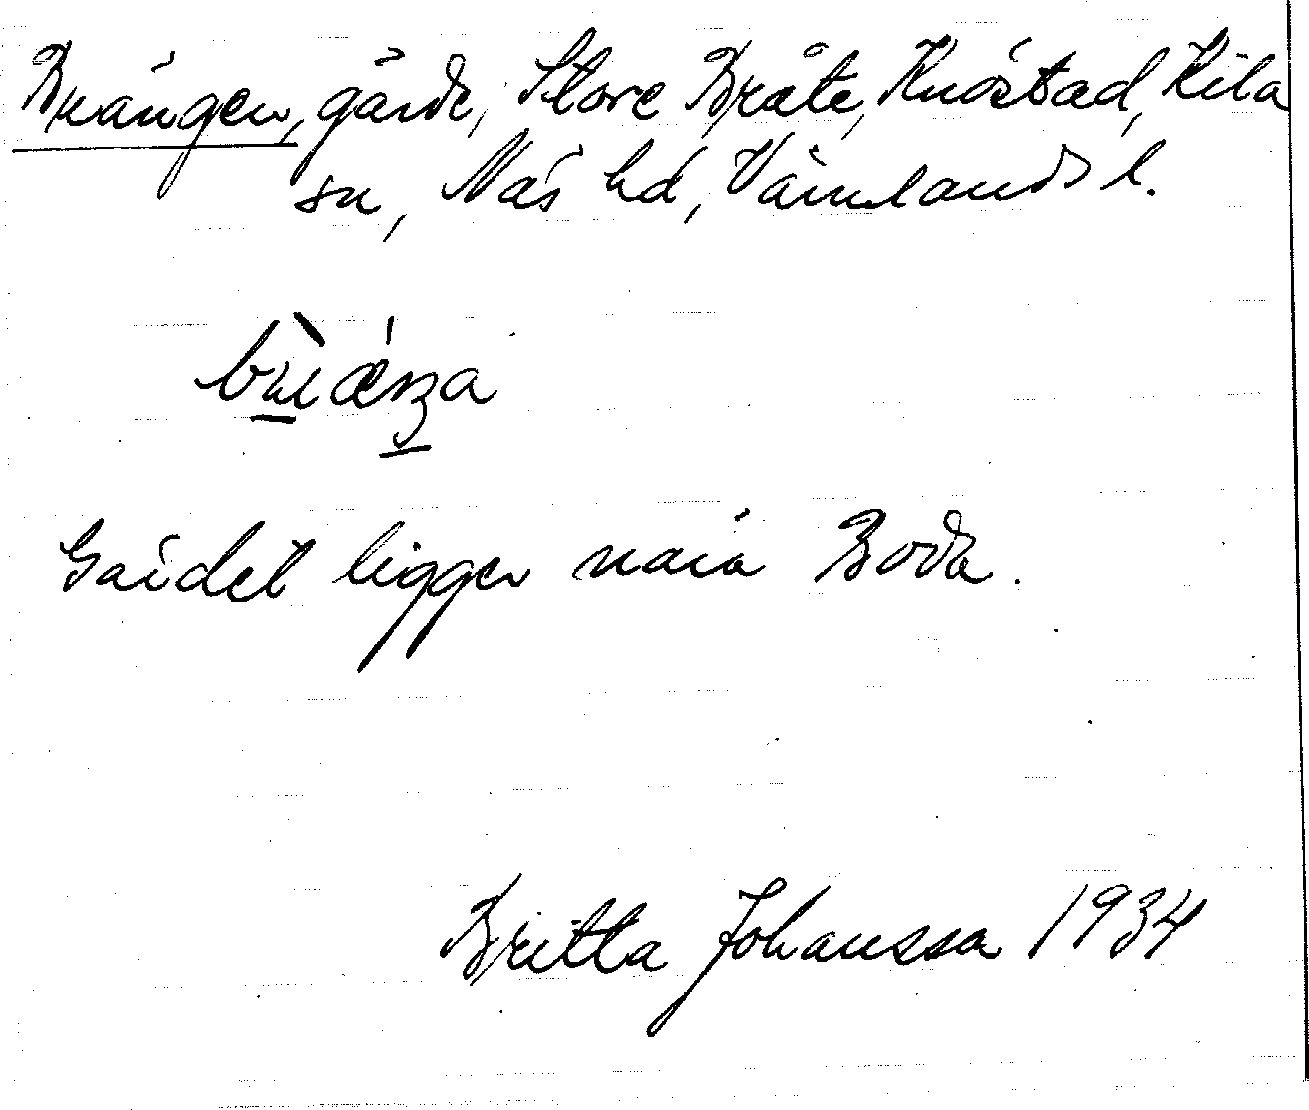 Brängen, gärde, Store Bråte, Knöstad, Kila
sn, Näs hd, Värmlands l.
Gärdet ligger nära Boda.
Britta Johansson 1934